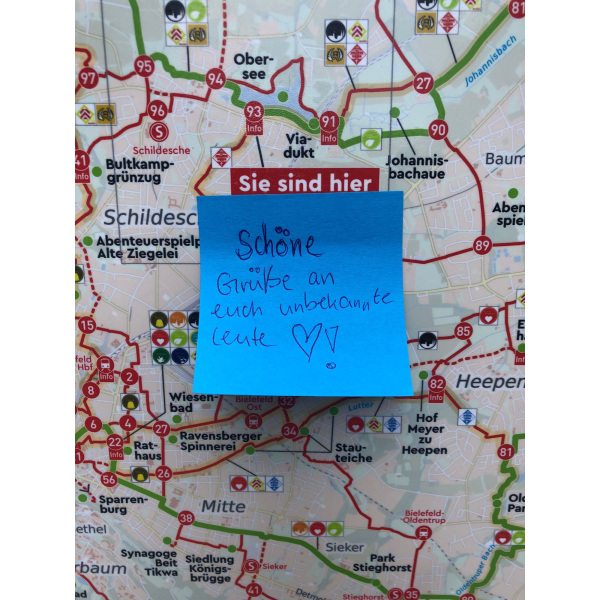 81
95
94
97
Ober-
see
27
Johannisbach
96
93
Info
91
Info
90
S
Schildesche
Via-
dukt
41
Info
Bultkamp-
grünzug
Johannis-
bachaue
Baum
Sie sind hier
Schildesc
Aben
spie
Abenteuerspielp
Alte Ziegelei
89
Schöne
Grüße an
euch unbekannte
Leute ♡!
15
85
E
ha
feld
Hbf
Info
2
8
82
Info
Heepen
Wiesen-
bad
Bielefeld
Ost
32
Lutter
6
4
27
34
Hof
Meyer
zu
Heepen
22
Info
Rat-
haus
Ravensberger
Spinnerei
Stau-
teiche
81
26
56
Sparren-
burg
Mitte
Old
Par
38
Bielefeld-
Oldentrup
ethel
Synagoge
Beit
Tikwa
Siedlung
Königs-
brügge
Sieker
S
Sieker
Park
Stieghorst
Oldentruper Bach
rbaum
41
Detmol
Stieghorst
S
35